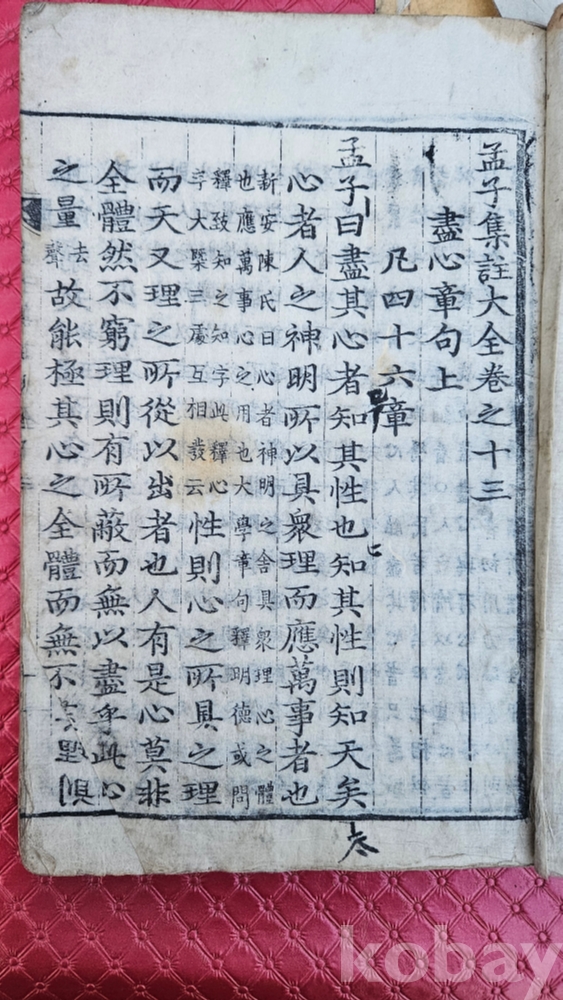 孟子集註大全卷之十三
盡心章句上
凡四十六章
孟子曰盡其心者知其性也知其性則知天矣
心者人之神明所以具衆理而應萬事者也
新安陳氏曰心者神明之舍具衆理心之體
也應萬事心之用也大學章句釋明德或問
釋致知之知字此釋心
字大槩三處互相發云
性則心之所具之理
而天又理之所從以出者也人有是心莫非
全體然不窮理則有所蔽而無以盡乎此心
之量去聲故能極其心之全體而無不
kobay